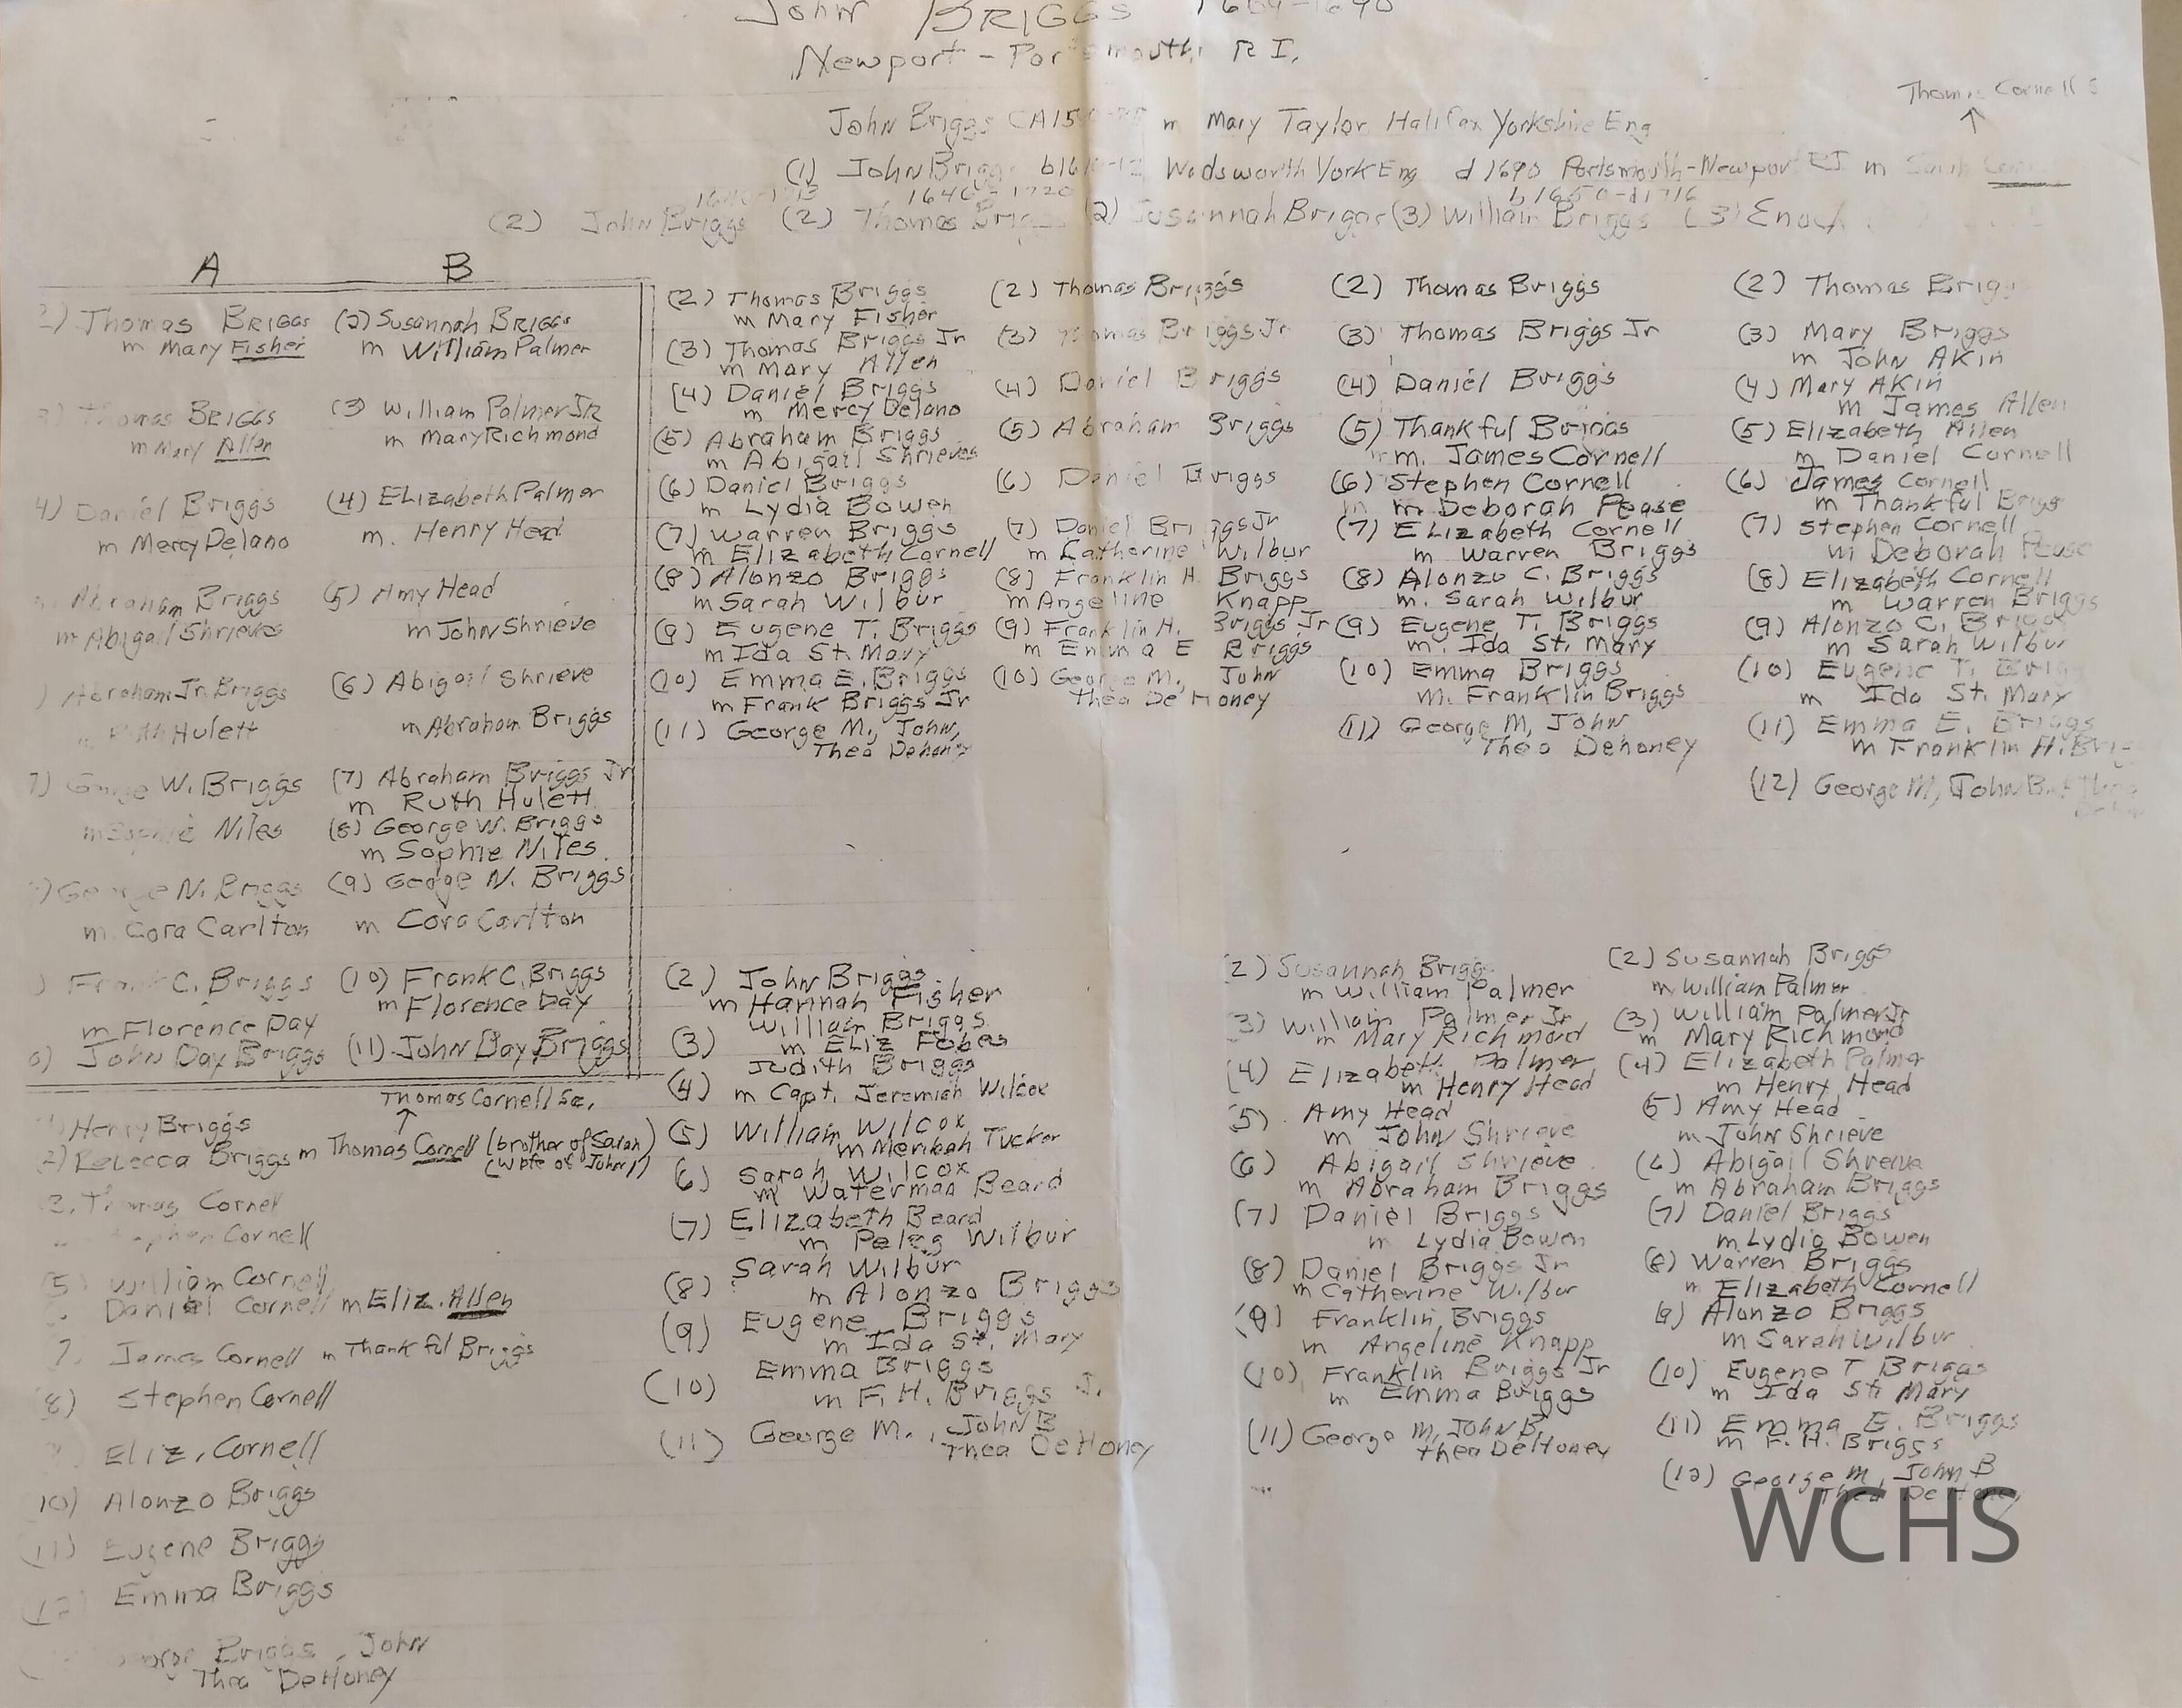 John BRIGGS
Newport - Portsmouth R I.
Thomas Cornell S
John Briggs CA15 m Mary Taylor Halifax Yorkshire Eng
(1) John Briggs b16 Wadsworth York Eng d 1690 Portsmouth-Newport RI m Sarah
1646-1720 b1650-d1716
(2) John Briggs (2) Thomas Briggs (2) Susannah Briggs (3) William Briggs (3) Enoch
A
2) Thomas BRIGGS
m Mary Fisher
3) Thomas BRIGGS
m Mary Allen
4) Daniel Briggs
m Mercy Delano
Abraham Briggs
m Abigail Shrieves
) Abraham Jr. Briggs
Ruth Hulett
7) George W. Briggs
m Sophie Niles
George N. Briggs
m. Cora Carlton
) Frank C. Briggs
m Florence Day
0) John Day Briggs
B
(2) Susannah BRIGGS
m William Palmer
(3) William Palmer JR
m Mary Richmond
(4) Elizabeth Palmer
m. Henry Head
(5) Amy Head
m John Shrieve
(6) Abigail Shrieve
m Abraham Briggs
(7) Abraham Briggs Jr
m Ruth Hulett
(8) George W. Briggs
m Sophie Niles.
(9) Geoge N. Briggs
m Cora Carlton
(10) Frank C. Briggs
m Florence Day
(11) John Day Briggs
(2) Thomas Briggs
m Mary Fisher
(3) Thomas Briggs Jr
m Mary Allen
(4) Daniel Briggs
m Mercy Delano
(5) Abraham Briggs
m Abigail Shrieves
(6) Daniel Briggs
m Lydia Bowen
(7) Warren Briggs
m Elizabeth Cornell
(8) Alonzo Briggs
m Sarah Wilbur
(9) Eugene T. Briggs
m Ida St. Mary
(10) Emma E. Briggs
m Frank Briggs Jr
(11) George M., John,
Thea Dehoney
(2) Thomas Briggs
(3) Thomas Briggs Jr
(4) Daniel Briggs
(5) Abraham Briggs
(6) Daniel Briggs
(7) Daniel Briggs Jr
m Catherine Wilbur
(8) Franklin H. Briggs
m Angeline Knapp
(9) Franklin H. Briggs Jr
m Emma E Briggs
(10) George M. John
Thea De Honey
(2) Thomas Briggs
(3) Thomas Briggs Jr
(4) Daniel Briggs
(5) Thankful Briggs
m. James Cornell
(6) Stephen Cornell
m Deborah Pease
(7) Elizabeth Cornell
m Warren Briggs
(8) Alonzo C. Briggs
m. Sarah Wilbur
(9) Eugene T. Briggs
m. Ida St. Mary
(10) Emma Briggs
m. Franklin Briggs
(11) George M, John
Thea Dehoney
(2) Thomas Briggs
(3) Mary Briggs
m John Akin
(4) Mary Akin
m James Allen
(5) Elizabeth Allen
m Daniel Cornell
(6) James Cornell
m Thankful Briggs
(7) Stephen Cornell
m Deborah Pease
(8) Elizabeth Cornell
m Warren Briggs
(9) Alonzo C. Briggs
m Sarah Wilbur
(10) Eugene T. Brig
m Ida St. Mary
(11) Emma E. Briggs
m Franklin H. Brig
(12) George M, John B.
Thomas Cornell Sr.
Henry Briggs
(2) Rebecca Briggs m Thomas Cornell (brother of Sarah)
(wife of John 1)
3. Thomas Cornel
Stephen Cornell
(5) William Cornell
Daniel Cornell m Eliz. Allen
7. James Cornell m Thankful Briggs
(8) Stephen Cornell
Eliz. Cornell
10) Alonzo Briggs
(11) Eugene Briggs
(12) Emma Briggs
George Briggs, John
Thea DeHoney
(2) John Briggs
m Hannah Fisher
William Briggs
(3) m Eliz Fobes
Judith Briggs
(4) m Capt. Jeremiah Wilcox
(5) William Wilcox
m Meribah Tucker
(6) Sarah Wilcox
m Waterman Beard
(7) Elizabeth Beard
m Peleg Wilbur
Sarah Wilbur
(8) m Alonzo Briggs
(9) Eugene Briggs
m Ida St. Mary
Emma Briggs
(10) m F. H. Briggs J.
(11) George M., John B
Thea DeHoney
(2) Susannah Briggs
m William Palmer
(3) William Palmer Jr
m Mary Richmond
(4) Elizabeth Palmer
m Henry Head
(5) Amy Head
m John Shrieve
(6) Abigail Shrieve
m Abraham Briggs
(7) Daniel Briggs
m Lydia Bowen
(8) Daniel Briggs Jr
m Catherine Wilbur
(9) Franklin Briggs
m Angeline Knapp
(10) Franklin Briggs Jr
m Emma Briggs
(11) George M, John B,
Thea DeHoney
(2) Susannah Briggs
m William Palmer
(3) William Palmer Jr
m Mary Richmond
(4) Elizabeth Palmer
m Henry Head
(5) Amy Head
m John Shrieve
(6) Abigail Shreive
m Abraham Briggs
(7) Daniel Briggs
m Lydia Bowen
(8) Warren Briggs
m Elizabeth Cornell
(9) Alonzo Briggs
m Sarah Wilbur
(10) Eugene T Briggs
m Ida St. Mary
(11) Emma E. Briggs
m F. H. Briggs
(12) George M, John B
Thea DeHoney
WCHS